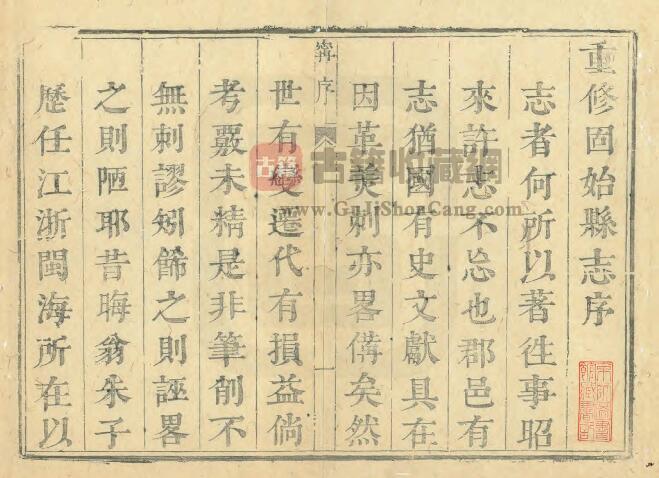 重修固始縣志序
志者何所以著徃事昭
來許志不忘也郡邑有
志猶國有史文獻具在
因革美刺亦畧備矣然
序
世有變遷代有損益倘
考覈未精是非筆削不
無刺謬矧餙之則誣畧
之則陋耶昔晦翁朱子
歷任江浙閩海所在以
古籍
古籍收藏網
www.GuJiShouCang.com